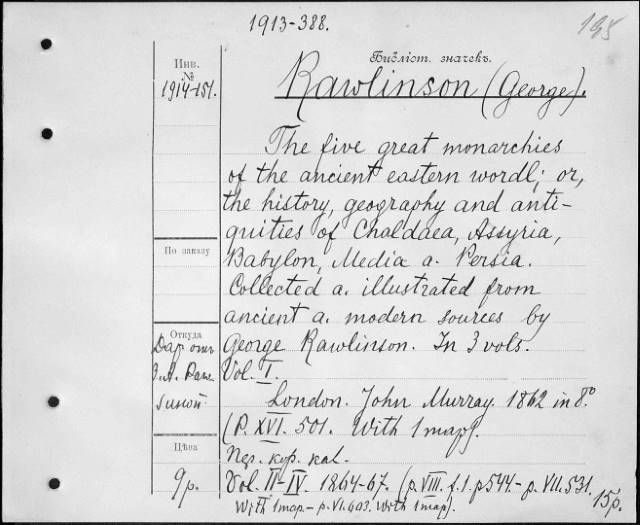 1913-388.
195
Инв.
№
1914-151.
Библіот. значекъ.
Rawlinson (George).
The five great monarchies
of the ancient eastern wordl; or,
the history, geography and anti-
quities of Chaldaea, Assyria,
Babylon, Media a. Persia.
Collected a. illustrated from
ancient a. modern sources by
George Rawlinson. In 3 vols.
Vol. I.
London. John Murray. 1862 in 8º
(P. XVI. 501. With 1 map).
Пер. кор. кал.
Vol. II-IV. 1864-67. (p. VIII. f. 1. p 544.- p. VII. 531.
With 1 map.- p. VI. 603. With 1 map).
По заказу
Откуда
Даръ отъ
З.А. Раго
зиной
Цѣна
9р.
15р.